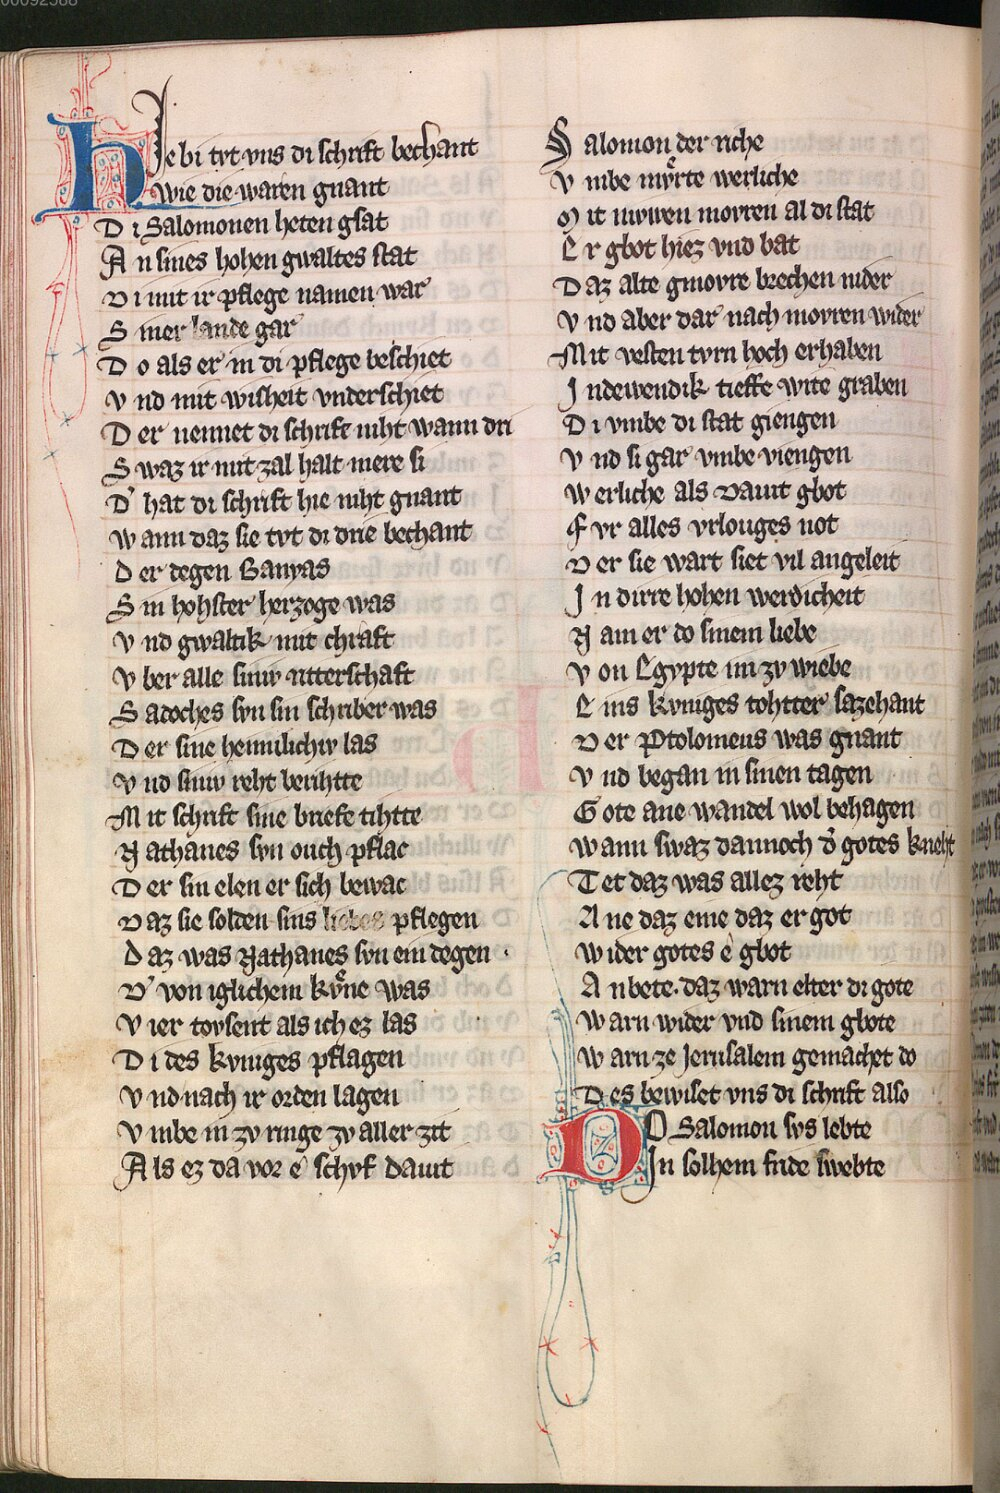 00092588
HIe bi tvt vns di schrift bechant
wie die waren gnant
Di Salomonen heten gsat
An sines hohen gwaltes stat
Di mit ir pflege namen war
Siner lande gar
Do als er in di pflege beschiet
Vnd mit wisheit vnderschiet
Der nennet di schrift niht wann dri
Swaz ir mit zal halt mere si
D' hat di schrift hie niht gnant
Wann daz sie tvt di drie bechant
Der degen Banyas
Sin hohster herzoge was
Vnd gwaltik mit chraft
Vber alle siniv ritterschaft
Sadoches svn sin schriber was
Der sine heimlichiv las
Vnd siniv reht berihtte
Mit schrift sine briefe tihtte
Nathanes svn ouch pflac
Der sin elen er sich bewac
Daz sie solden sins liebes pflegen
Daz was Nathanes svn ein degen ·
D' von iglichem kvͤne was
Vier tovsent als ich ez las
Di des kvniges pflagen
Vnd nach ir orden lagen
Vmbe in zv ringe zv aller zit
Als ez da vor e schvf dauit
Salomon der riche
Vmbe mvͤrte werliche
Mit niwen movren al di stat
Er gbot hiez vnd bat
Daz alte gmovre brechen nider
Vnd aber dar nach movren wider
Mit vesten tvrn hoch erhaben
Indewendik tieffe wite graben
Di vmbe di stat giengen
Vnd si gar vmbe viengen
Werliche als Dauit gbot
Fvr alles vrlouges not
Der sie wart siet vil angeleit
In dirre hohen werdicheit
Nam er do sinem liebe
Von Egypte im zv wiebe
Eins kvniges tohtter sazehant
Der Ptolomeus was gnant
Vnd began in sinen tagen
Gote ane wandel wol behagen
Wann swaz dannoch d' gotes kneht
Tet daz was allez reht
Ane daz eine daz er got
Wider gotes e gbot
An bete. daz warn elter di gote
Warn wider vnd sinem gbote
Warn ze Jerusalem gemachet do
Des bewiset vns di schrift also
DO Salomon svs lebte
In solhem fride swebte